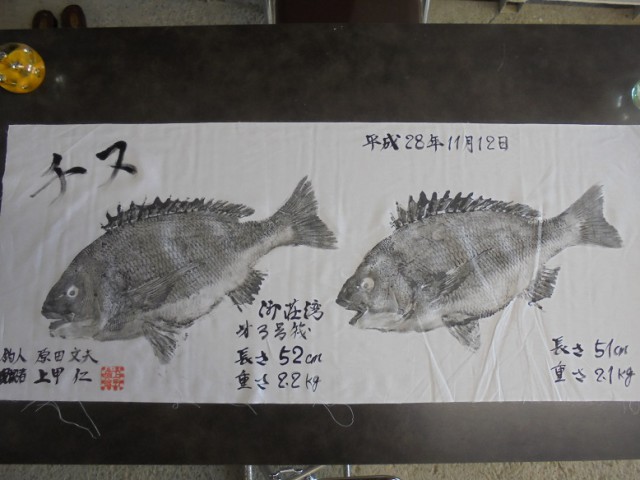 チヌ
平成28年11月12日
御荘湾
3号筏
長さ 52cm
重さ 2.2kg
釣人 原田文夫
現認者 上甲 仁
長さ 51cm
重さ 2.1kg